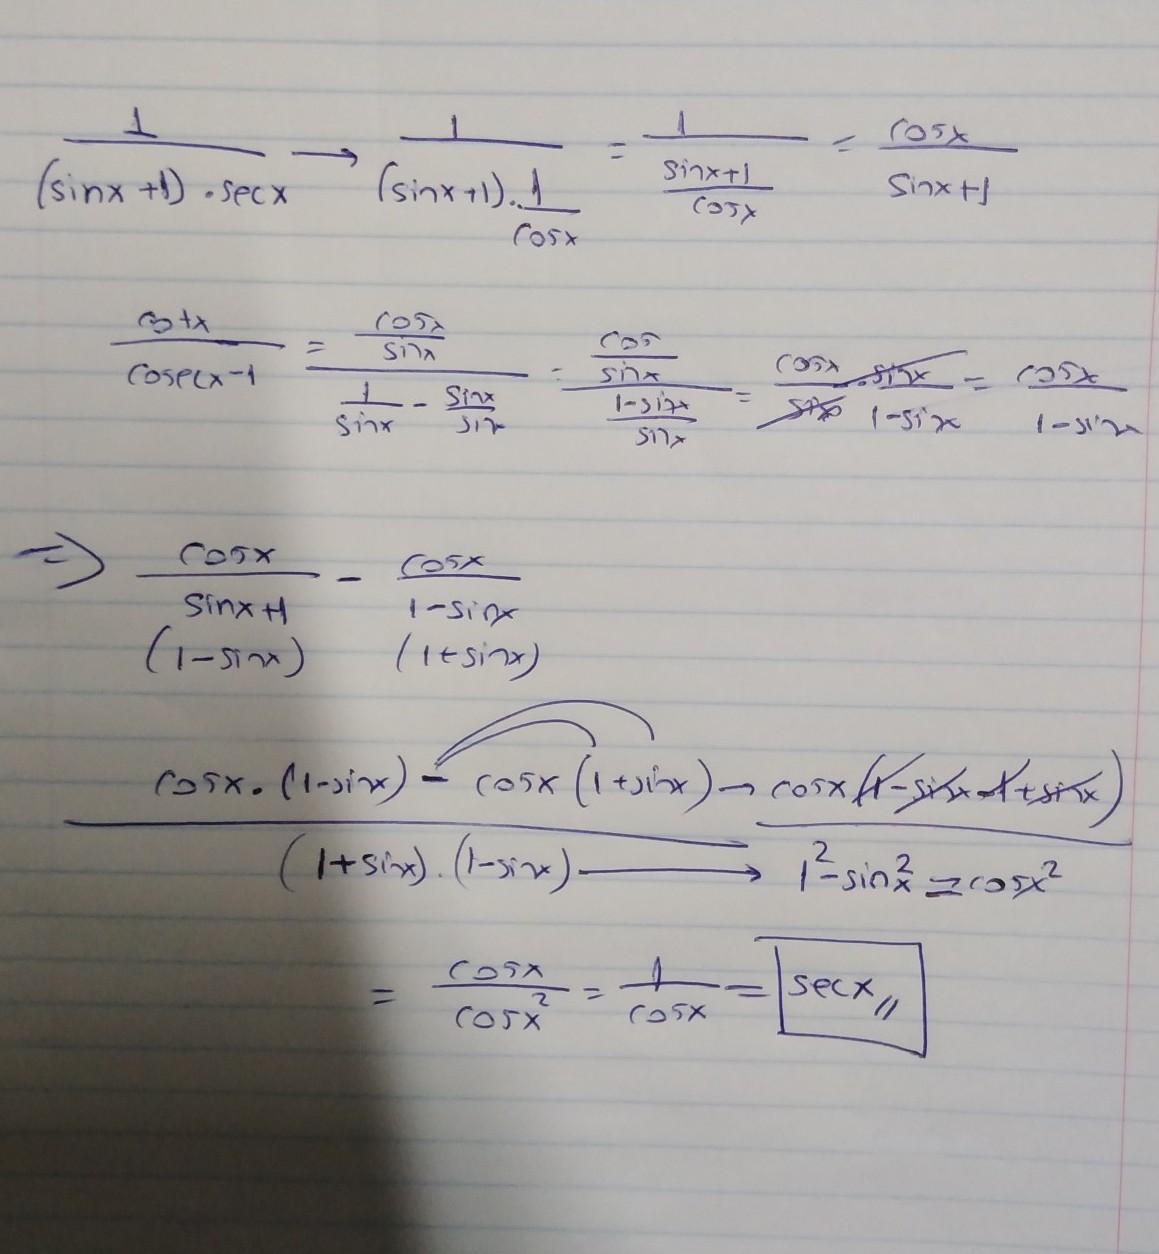 1/((sinx+1).secx) → 1/((sinx+1).1/cosx) = 1/((sinx+1)/cosx) = cosx/(sinx+1)
cotx/(cosecx-1) = (cosx/sinx)/(1/sinx - sinx/sinx) = (cos/sinx)/((1-sinx)/sinx) = cosx/sinx . sinx/(1-sinx) = cosx/(1-sinx)
⇒ cosx/(sinx+1) - cosx/(1-sinx)
(1-sinx) (1+sinx)
cosx.(1-sinx) - cosx(1+sinx) → cosx(1-sinx-1+sinx)
(1+sinx).(1-sinx) → 1²-sin²x = cosx²
= cosx/cosx² = 1/cosx = secx //